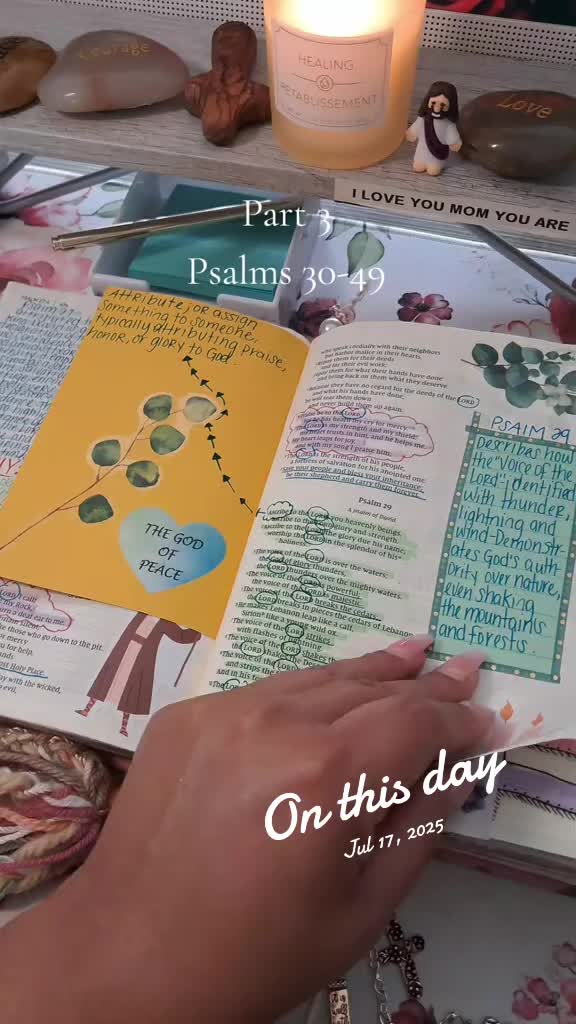 Courage
HEALING
RETABLISSEMENT
Love
I LOVE YOU MOM YOU ARE
Part 3
Psalms 30-49
Attribute, or assign
something to someone,
typically attributing praise,
honor, or glory to God.
THE GOD
OF
PEACE
who speak cordially with their neighbors
but harbor malice in their hearts.
them for their deeds
and for their evil work;
them for what their hands have done
and bring back on them what they deserve.
they have no regard for the deeds of the LORD
and what his hands have done,
he will tear them down
and never build them up again.
be to the LORD,
he has heard my cry for mercy.
The LORD is my strength and my shield;
my heart trusts in him, and he helps me.
My heart leaps for joy,
and with my song I praise him.
The LORD is the strength of his people,
a fortress of salvation for his anointed one.
Save your people and bless your inheritance;
be their shepherd and carry them forever.
Psalm 29
A psalm of David.
Ascribe to the LORD, you heavenly beings,
ascribe to the LORD glory and strength.
Ascribe to the LORD the glory due his name;
worship the LORD in the splendor of his
holiness.
The voice of the LORD is over the waters;
the God of glory thunders,
the LORD thunders over the mighty waters.
The voice of the LORD is powerful;
the voice of the LORD is majestic.
The voice of the LORD breaks the cedars;
the LORD breaks in pieces the cedars of Lebanon
He makes Lebanon leap like a calf,
Sirion like a young wild ox.
The voice of the LORD strikes
with flashes of lightning
The voice of the LORD shakes the
the LORD shakes the Desert
The voice of the LORD
and strips the
And in his
The LORD
PSALM 29
Describes how
the "Voice of the
Lord" identified
with thunder,
lightning and
wind-Demonstr-
ates God's auth-
ority over nature,
even shaking
the mountains
and forests.
I call;
my Rock,
a deaf ear to me.
remain silent
like those who go down to the pit.
my cry for mercy
you for help,
hands
Most Holy Place.
away with the wicked,
do evil,
On this day
Jul 17, 2025